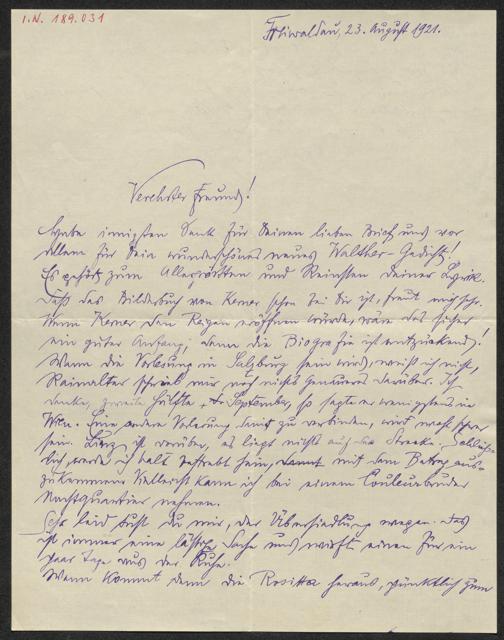 I.N. 189.031
Freiwaldau, 23. August 1921.
Verehrter Freund!
Habe innigsten Dank für Deinen lieben Brief und vor
allem für Dein wunderschönes neues Walther-Gedicht!
Es gehört zum Allerzartesten und Reinsten deiner Lyrik.
Daß das Bilderbuch von Kerner schon bei Dir ist, freut mich sehr.
Wenn Kerner den Reigen eröffnen würde, wäre das sicher
ein guter Anfang; denn die Biografie ist entzückend!
Wann die Vorlesung in Salzburg sein wird, weiß ich nicht,
Rainalter schrieb mir noch nichts genaueres darüber. Ich
denke, zweite Hälfte September, so sagte er wenigstens in
Wien. Eine andere Vorlesung damit zu verbinden, wird wohl schwer
sein. Linz ist vorüber, es liegt nichts auf der Strecke. Schließ-
lich werde ich halt bestrebt sein, damit mit dem Betrag aus-
zukommen. Vielleicht kann ich bei einem Couleurbruder
Nachtquartier nehmen.
Sehr leid tust Du mir, der Übersiedlung wegen. Das
ist immer eine lästige Sache und wirft einen für ein
paar Tage aus der Ruhe.
Wann kommt denn die Rositta heraus, pünktlich zum